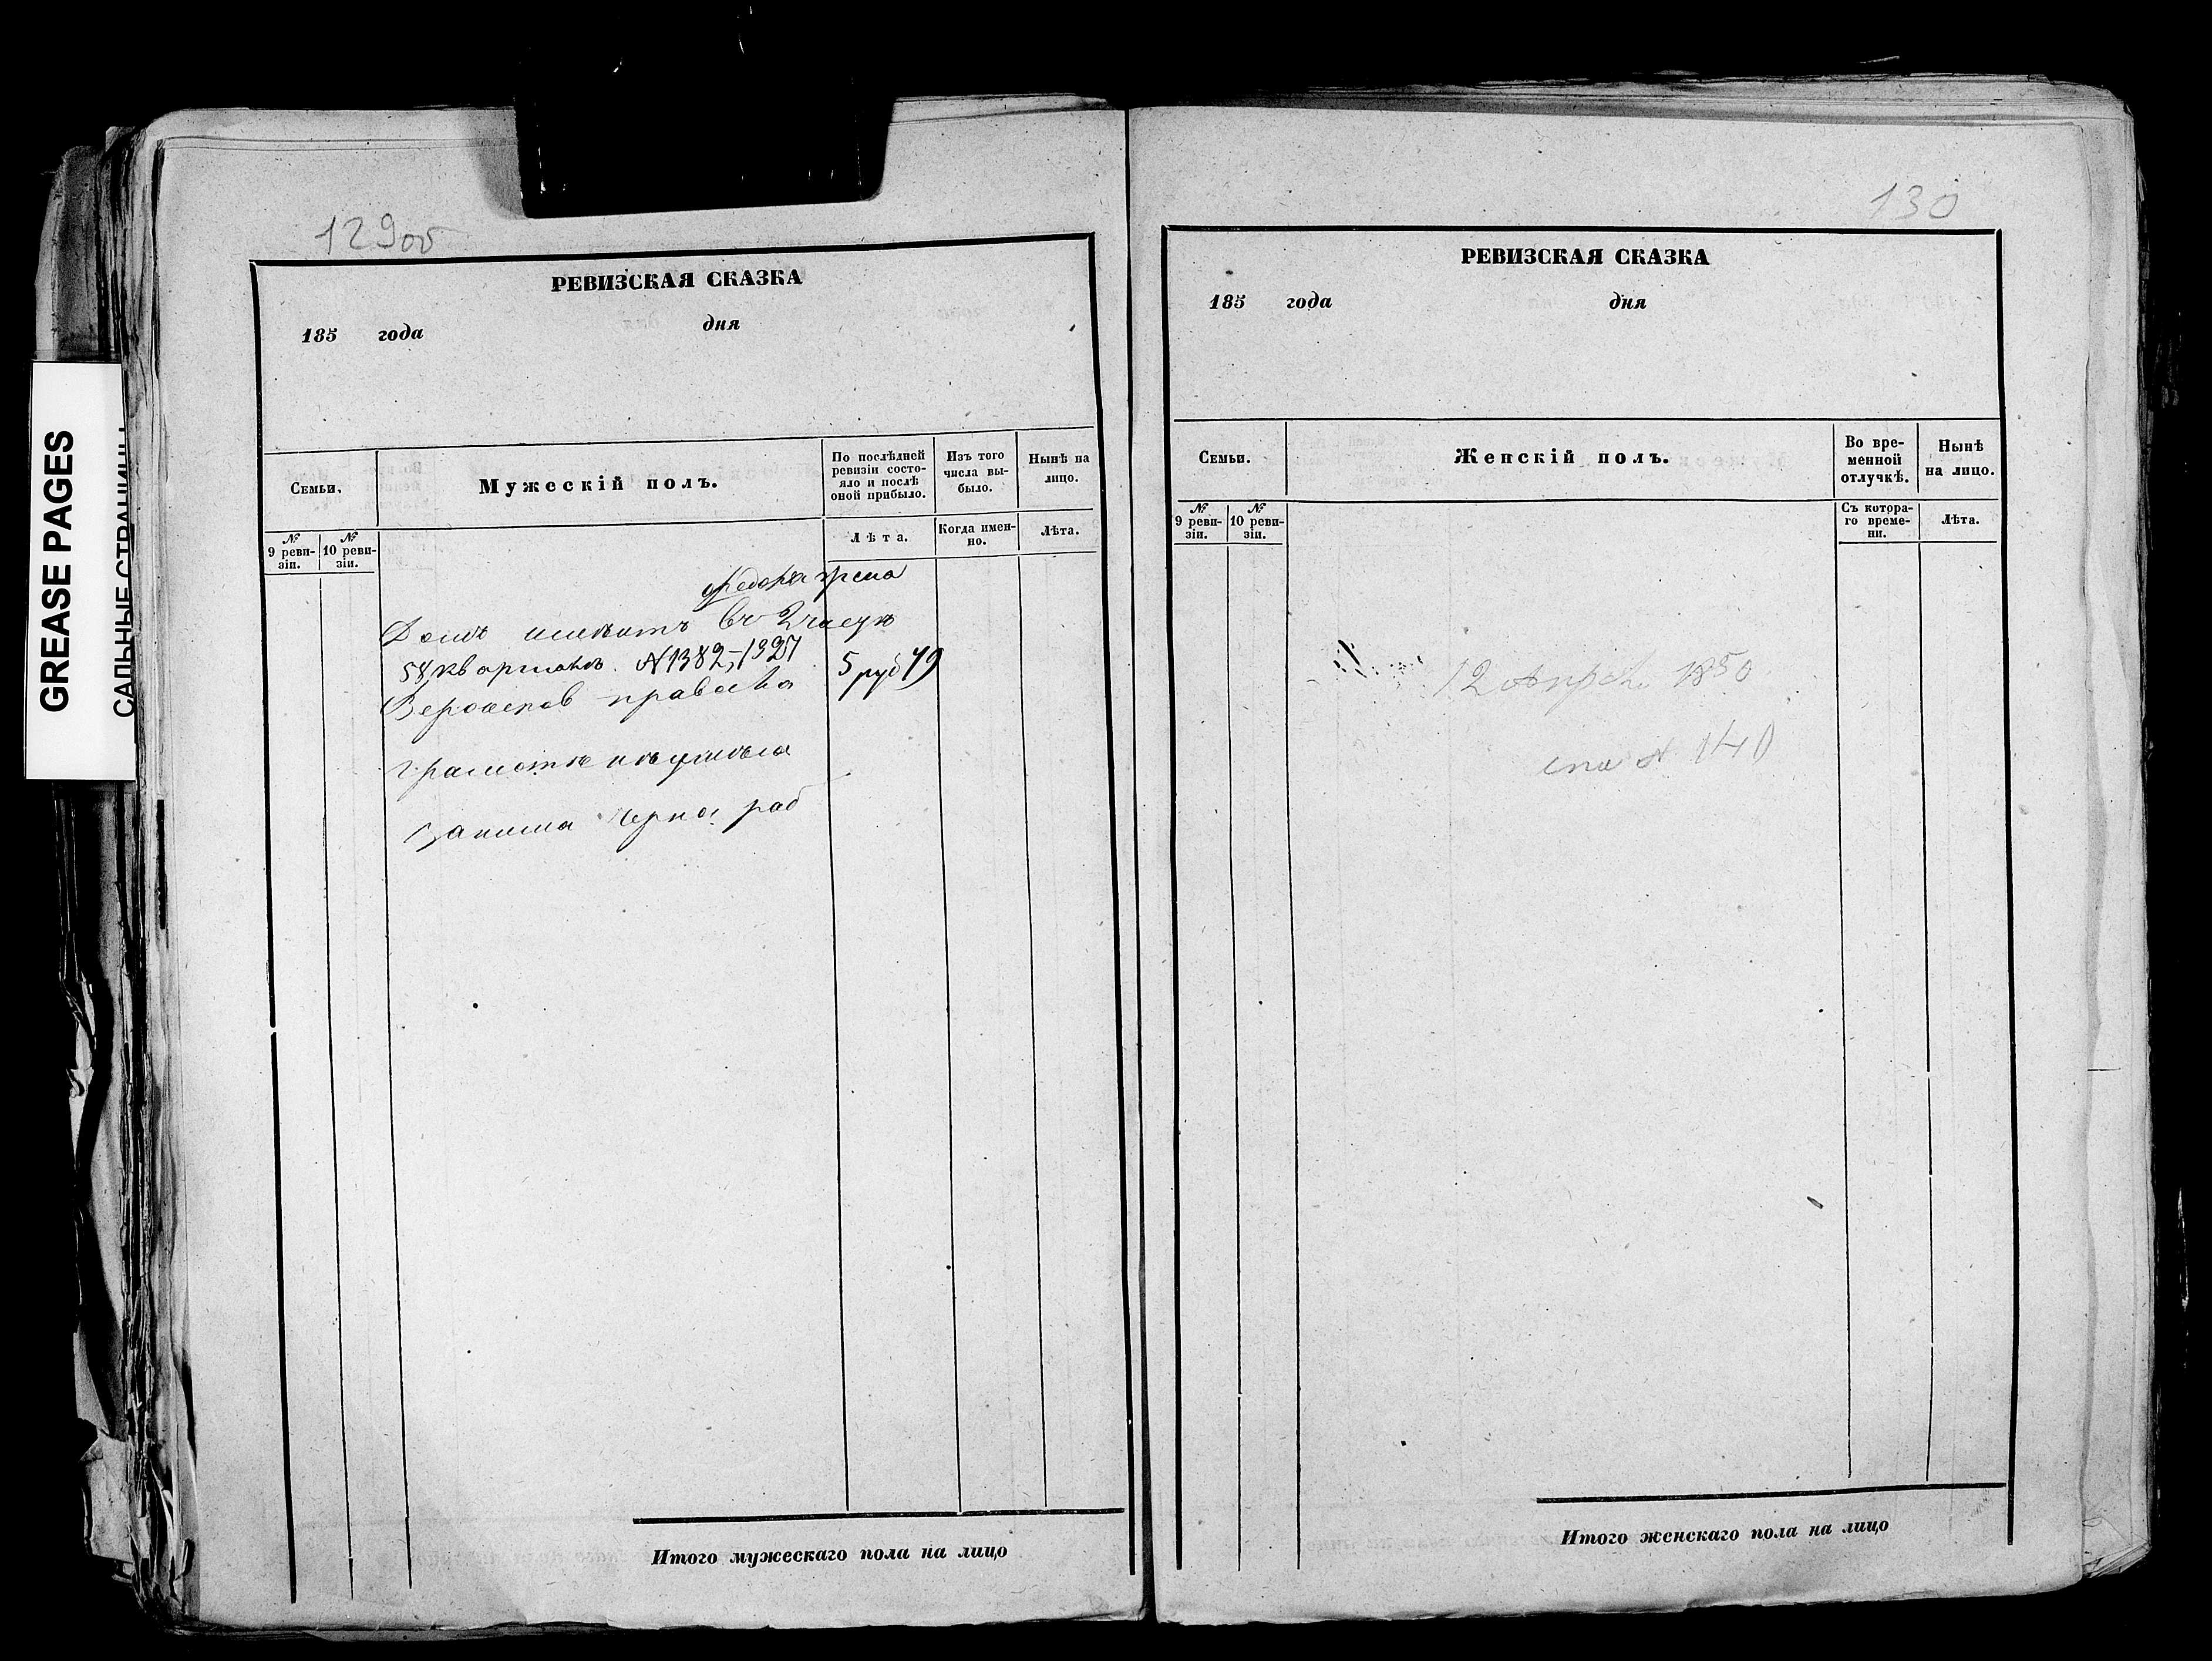 GREASE PAGES
САЛЬНЫЕ СТРАНИЦЫ
129об
РЕВИЗСКАЯ СКАЗКА
185 года дня
Семьи.
Мужескій полъ.
По послѣдней ревизіи состояло и послѣ оной прибыло.
Изъ того числа выбыло.
Нынѣ на лицо.
№ 9 ревизіи.
№ 10 ревизіи.
Лѣта.
Когда именно.
Лѣта.
Домъ имѣетъ Въ 2 части
54 квартала № 1382, 1327
5 руб 79
грамотѣ неумѣла
Черно раб
Итого мужескаго пола на лицо
130
РЕВИЗСКАЯ СКАЗКА
185 года дня
Семьи.
Женскій полъ.
Во временной отлучкѣ.
Нынѣ на лицо.
№ 9 ревизіи.
№ 10 ревизіи.
Съ котораго времени.
Лѣта.
12 Апрель 1850
№ 140
Итого женскаго пола на лицо